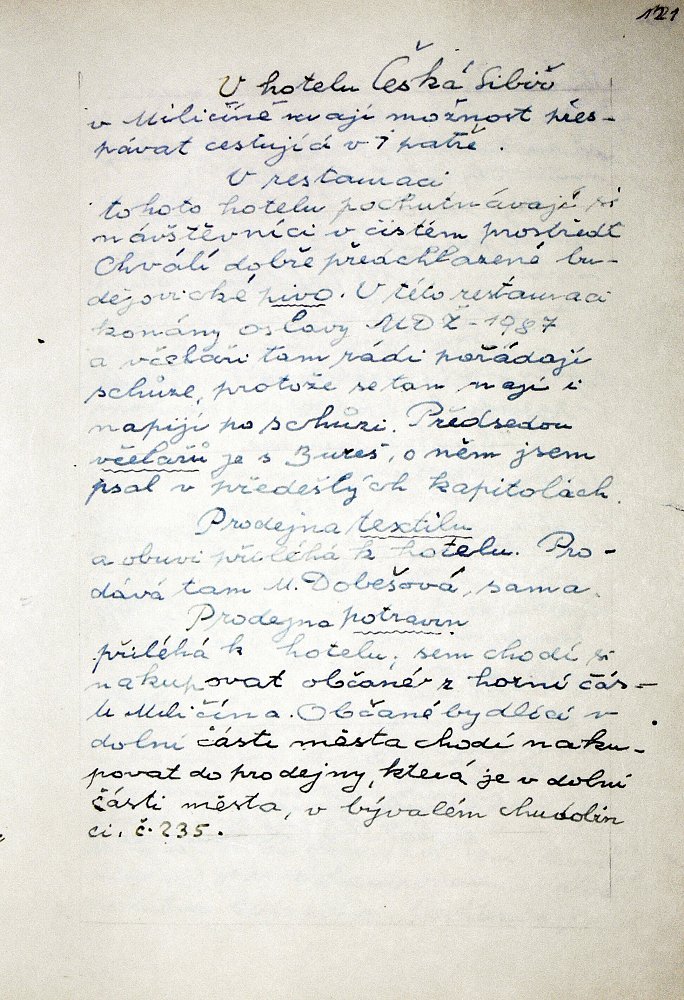 121
V hotelu Česká Sibiř
v Miličíně mají možnost přes-
pávat cestující v 1 patře.
V restauraci
tohoto hotelu pochutnávají si
návštěvníci v čistém prostředí
Chválí dobře předchlazené bu-
dějovické pivo. V této restauraci
konány oslavy MDŽ - 1987
a včelaři tam rádi pořádají
schůze, protože se tam nají i
napijí po schůzi. Předsedou
včelařů je s Bureš, o něm jsem
psal v předešlých kapitolách.
Prodejna textilu
a obuvi přiléhá k hotelu. Pro-
dává tam M. Dobešová, sama.
Prodejna potravin
přiléhá k hotelu, sem chodí si
nakupovat občané z horní čás-
ti Miličína. Občané bydlící v
dolní části města chodí naku-
povat do prodejny, která je v dolní
části města, v bývalém chudobin
ci, č. 235.